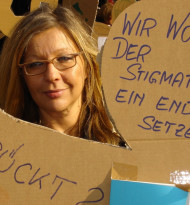 WIR WO
DER
STIGMAT
EIN END
SETZE
ÜCKT?